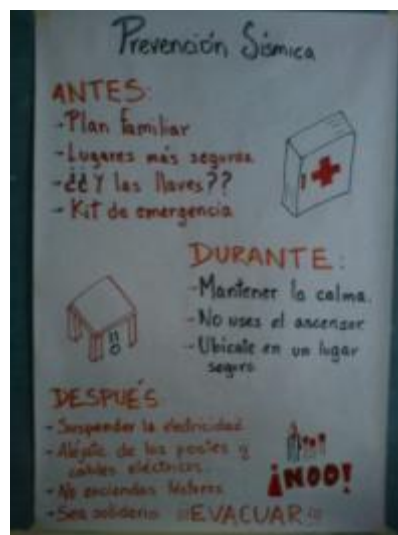 Prevención Sísmica
ANTES:
- Plan familiar
- Lugares más seguros
- ¿¿ Y las llaves??
- Kit de emergencia
DURANTE:
- Mantener la calma.
- No uses el ascensor
- Ubícate en un lugar
seguro
DESPUÉS
- Suspender la electricidad
- Aléjate de los postes y
cables eléctricos
- No enciendas
- Sea solidario ¡¡¡EVACUAR!!!
¡NOO!